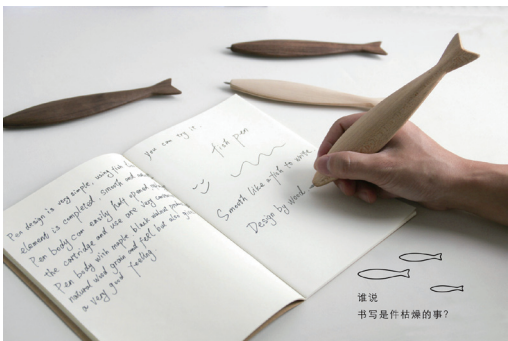 Pen design is very simple, using fish
element is completed smooth and
Pen body can easily
the cartridge and use are very
Pen body with maple black walnut
natural wood grain and feel but also
a very good feeling
you can try it.
fish pen
Smooth like a fish to write
Design by wood
谁说
书写是件枯燥的事?